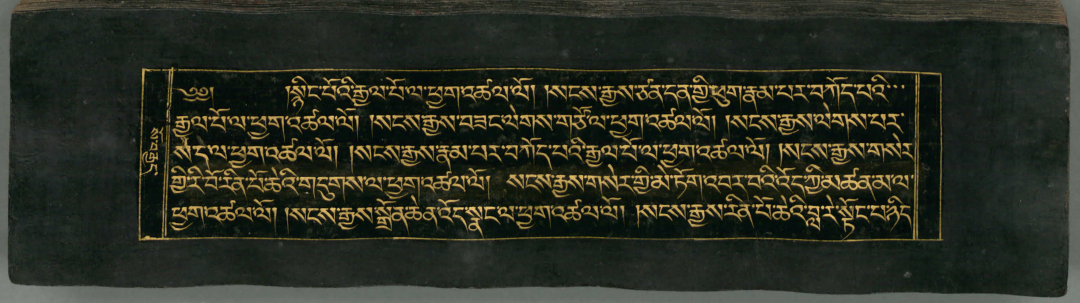 ༄༅། །སྙིང་པོའི་རྒྱལ་པོ་ལ་ཕྱག་འཚལ་ལོ། །སངས་རྒྱས་ཙན་དན་གྱི་ཕུག་རྣམ་པར་བཀོད་པའི་
རྒྱལ་པོ་ལ་ཕྱག་འཚལ་ལོ། །སངས་རྒྱས་བཟང་ལེགས་གཙོ་ལ་ཕྱག་འཚལ་ལོ། །སངས་རྒྱས་ལེགས་པར་
སེད་ལ་ཕྱག་འཚལ་ལོ། །སངས་རྒྱས་རྣམ་པར་བཀོད་པའི་རྒྱལ་པོ་ལ་ཕྱག་འཚལ་ལོ། །སངས་རྒྱས་གསེར་
གྱི་རི་བོ་རིན་པོ་ཆེའི་གདུགས་ལ་ཕྱག་འཚལ་ལོ། སངས་རྒྱས་གསེར་གྱི་མེ་ཏོག་འབར་བའི་འོད་ཀྱི་མཚན་མ་ལ་
ཕྱག་འཚལ་ལོ། །སངས་རྒྱས་སྒྲོན་ཆེན་འོད་སྣང་ལ་ཕྱག་འཚལ་ལོ། །སངས་རྒྱས་རིན་པོ་ཆེའི་བླ་རེ་སྟོང་པ་ཉིད་